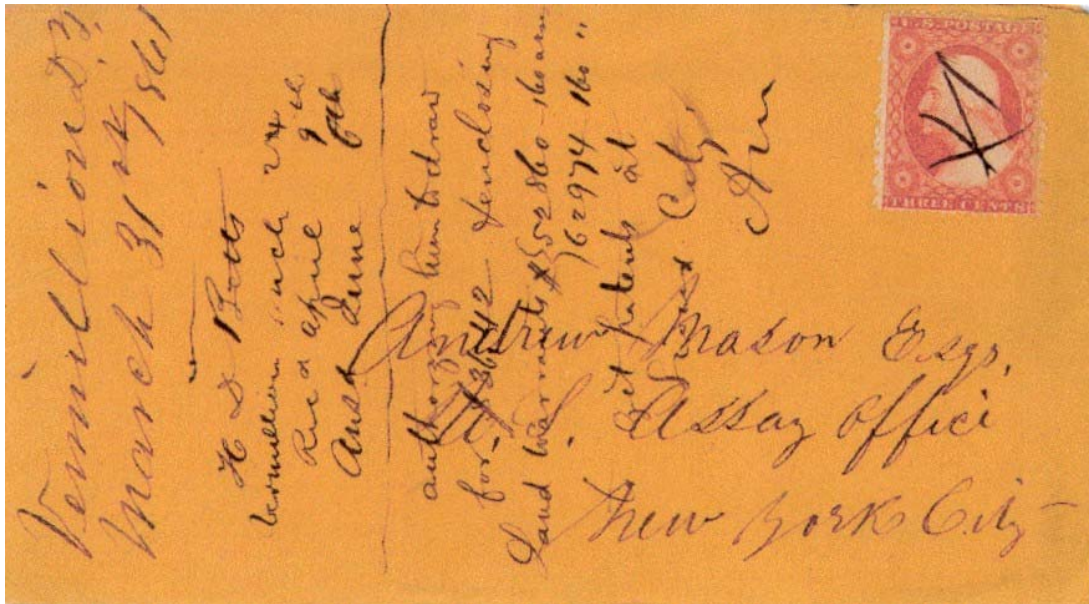 Vermillion D.T.
March 31st/861
H D Betts
Vermillion March 24
Recd april 9th
Ansd June 8th
authorizing him to draw
for $36.42 & enclosing
Land Warrants 52860-160 acres
62974 160 "
get patents at
City
U.S. POSTAGE
THREE CENTS
Andrew Mason Esqr,
U. S. Assay Office
New York City